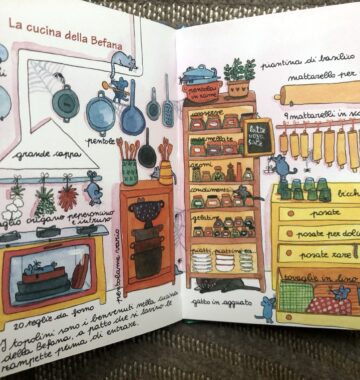 La cucina della Befana
pentole
grande cappa
aglio origano peperoncino
pentolame vario
20 teglie da forno
I topolini sono i benvenuti nella cucina
della Befana, a patto che si lavino le
zampette prima di entrare.
piantina di basilico
pentola
in rame
mattarello per
9 mattarelli in sc
conserve
marmellate
latte
uova
aromi
condimenti
gelatine
piatti
gatto in agguato
bicch
posate
posate per dol
posate rare
tovaglie in lino